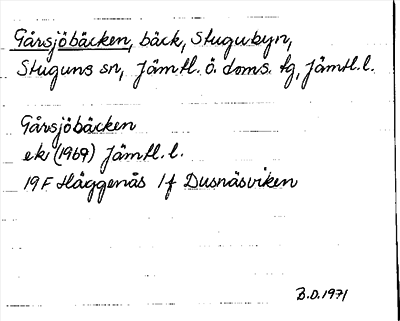 Gårsjöbäcken, bäck, Stugubyn,
Stuguns sn, Jämtl. ö. doms. tg, Jämtl. l.
Gårsjöbäcken
ek (1969) Jämtl. l.
19F Häggenås 1f Dusnäsviken
B.D. 1971